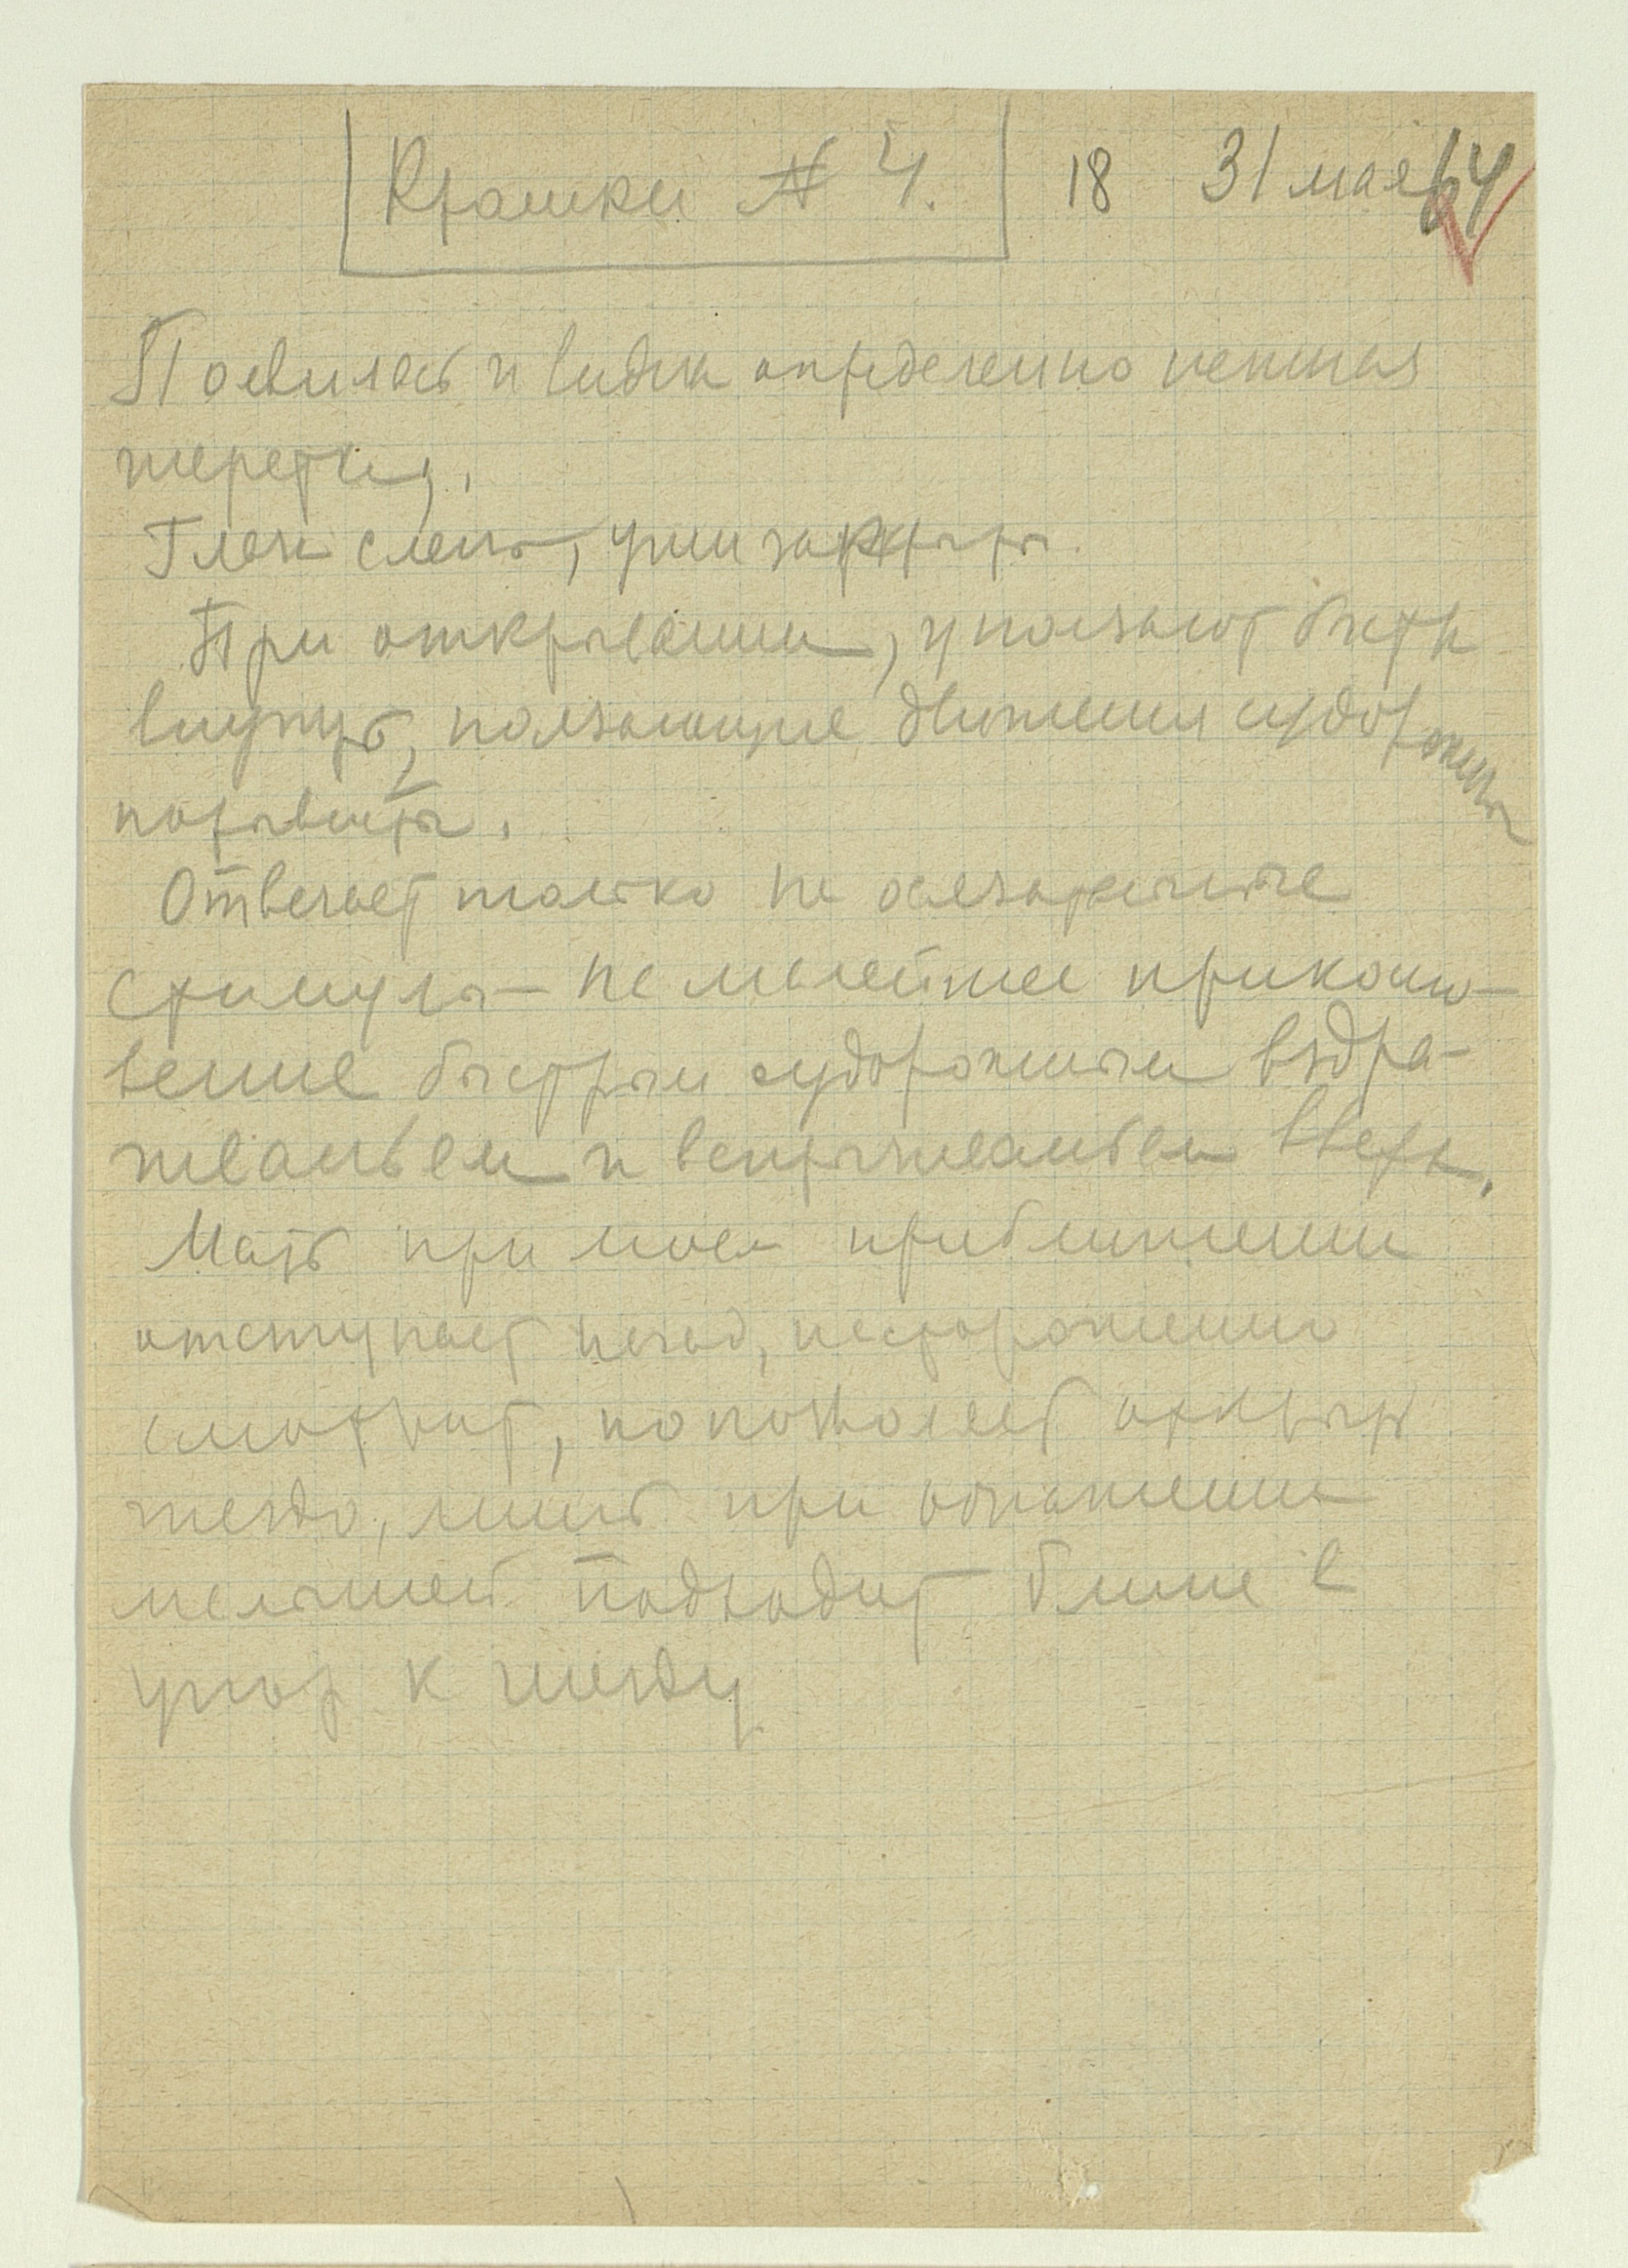 Крошки № 4. 18 31 мая 64
Появилась и видна определенно нежная
шерстка.
Глаза слепы, уши закрыты.
При открывании, уползают
внутрь, ползающие движения судорожны
порывисты.
Отвечает только на осязательные
стимулы — на малейшее прикосно-
вение быстрым судорожным вздра-
гиваньем и вспрыгиваньем вверх.
Мать при моем приближении
отступает назад, настороженно
смотрит, но позволяет открыть
гнездо, лишь при обнажении
малышей подходит ближе в
упор к гнезду